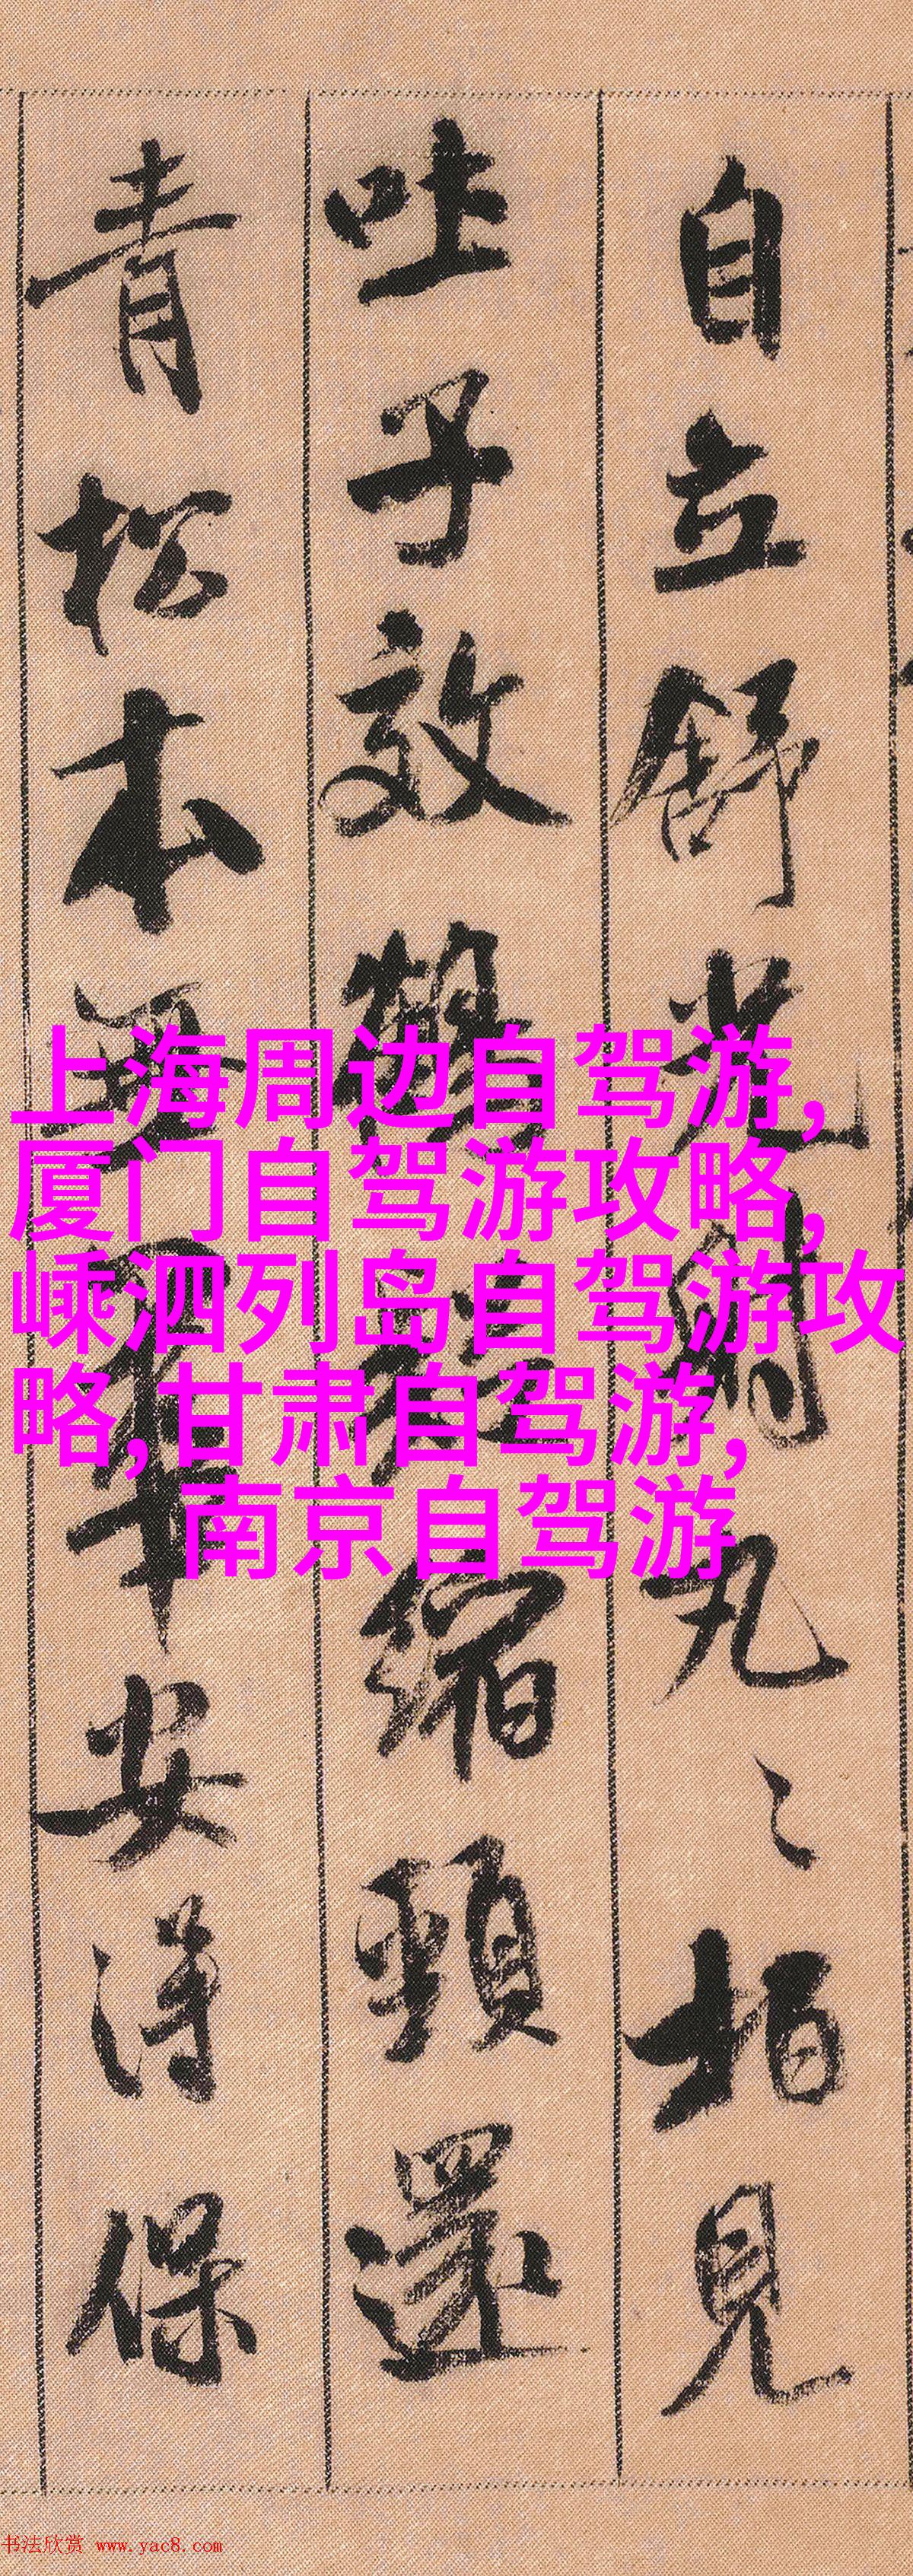 自立舒光射丸〻柏見
吐子效鶴疑縮頸還
青松本無華安得保
上海周边自驾游,
厦门自驾游攻略,
嵊泗列岛自驾游攻
略,甘肃自驾游,
南京自驾游
书法欣赏 www.yac8.com